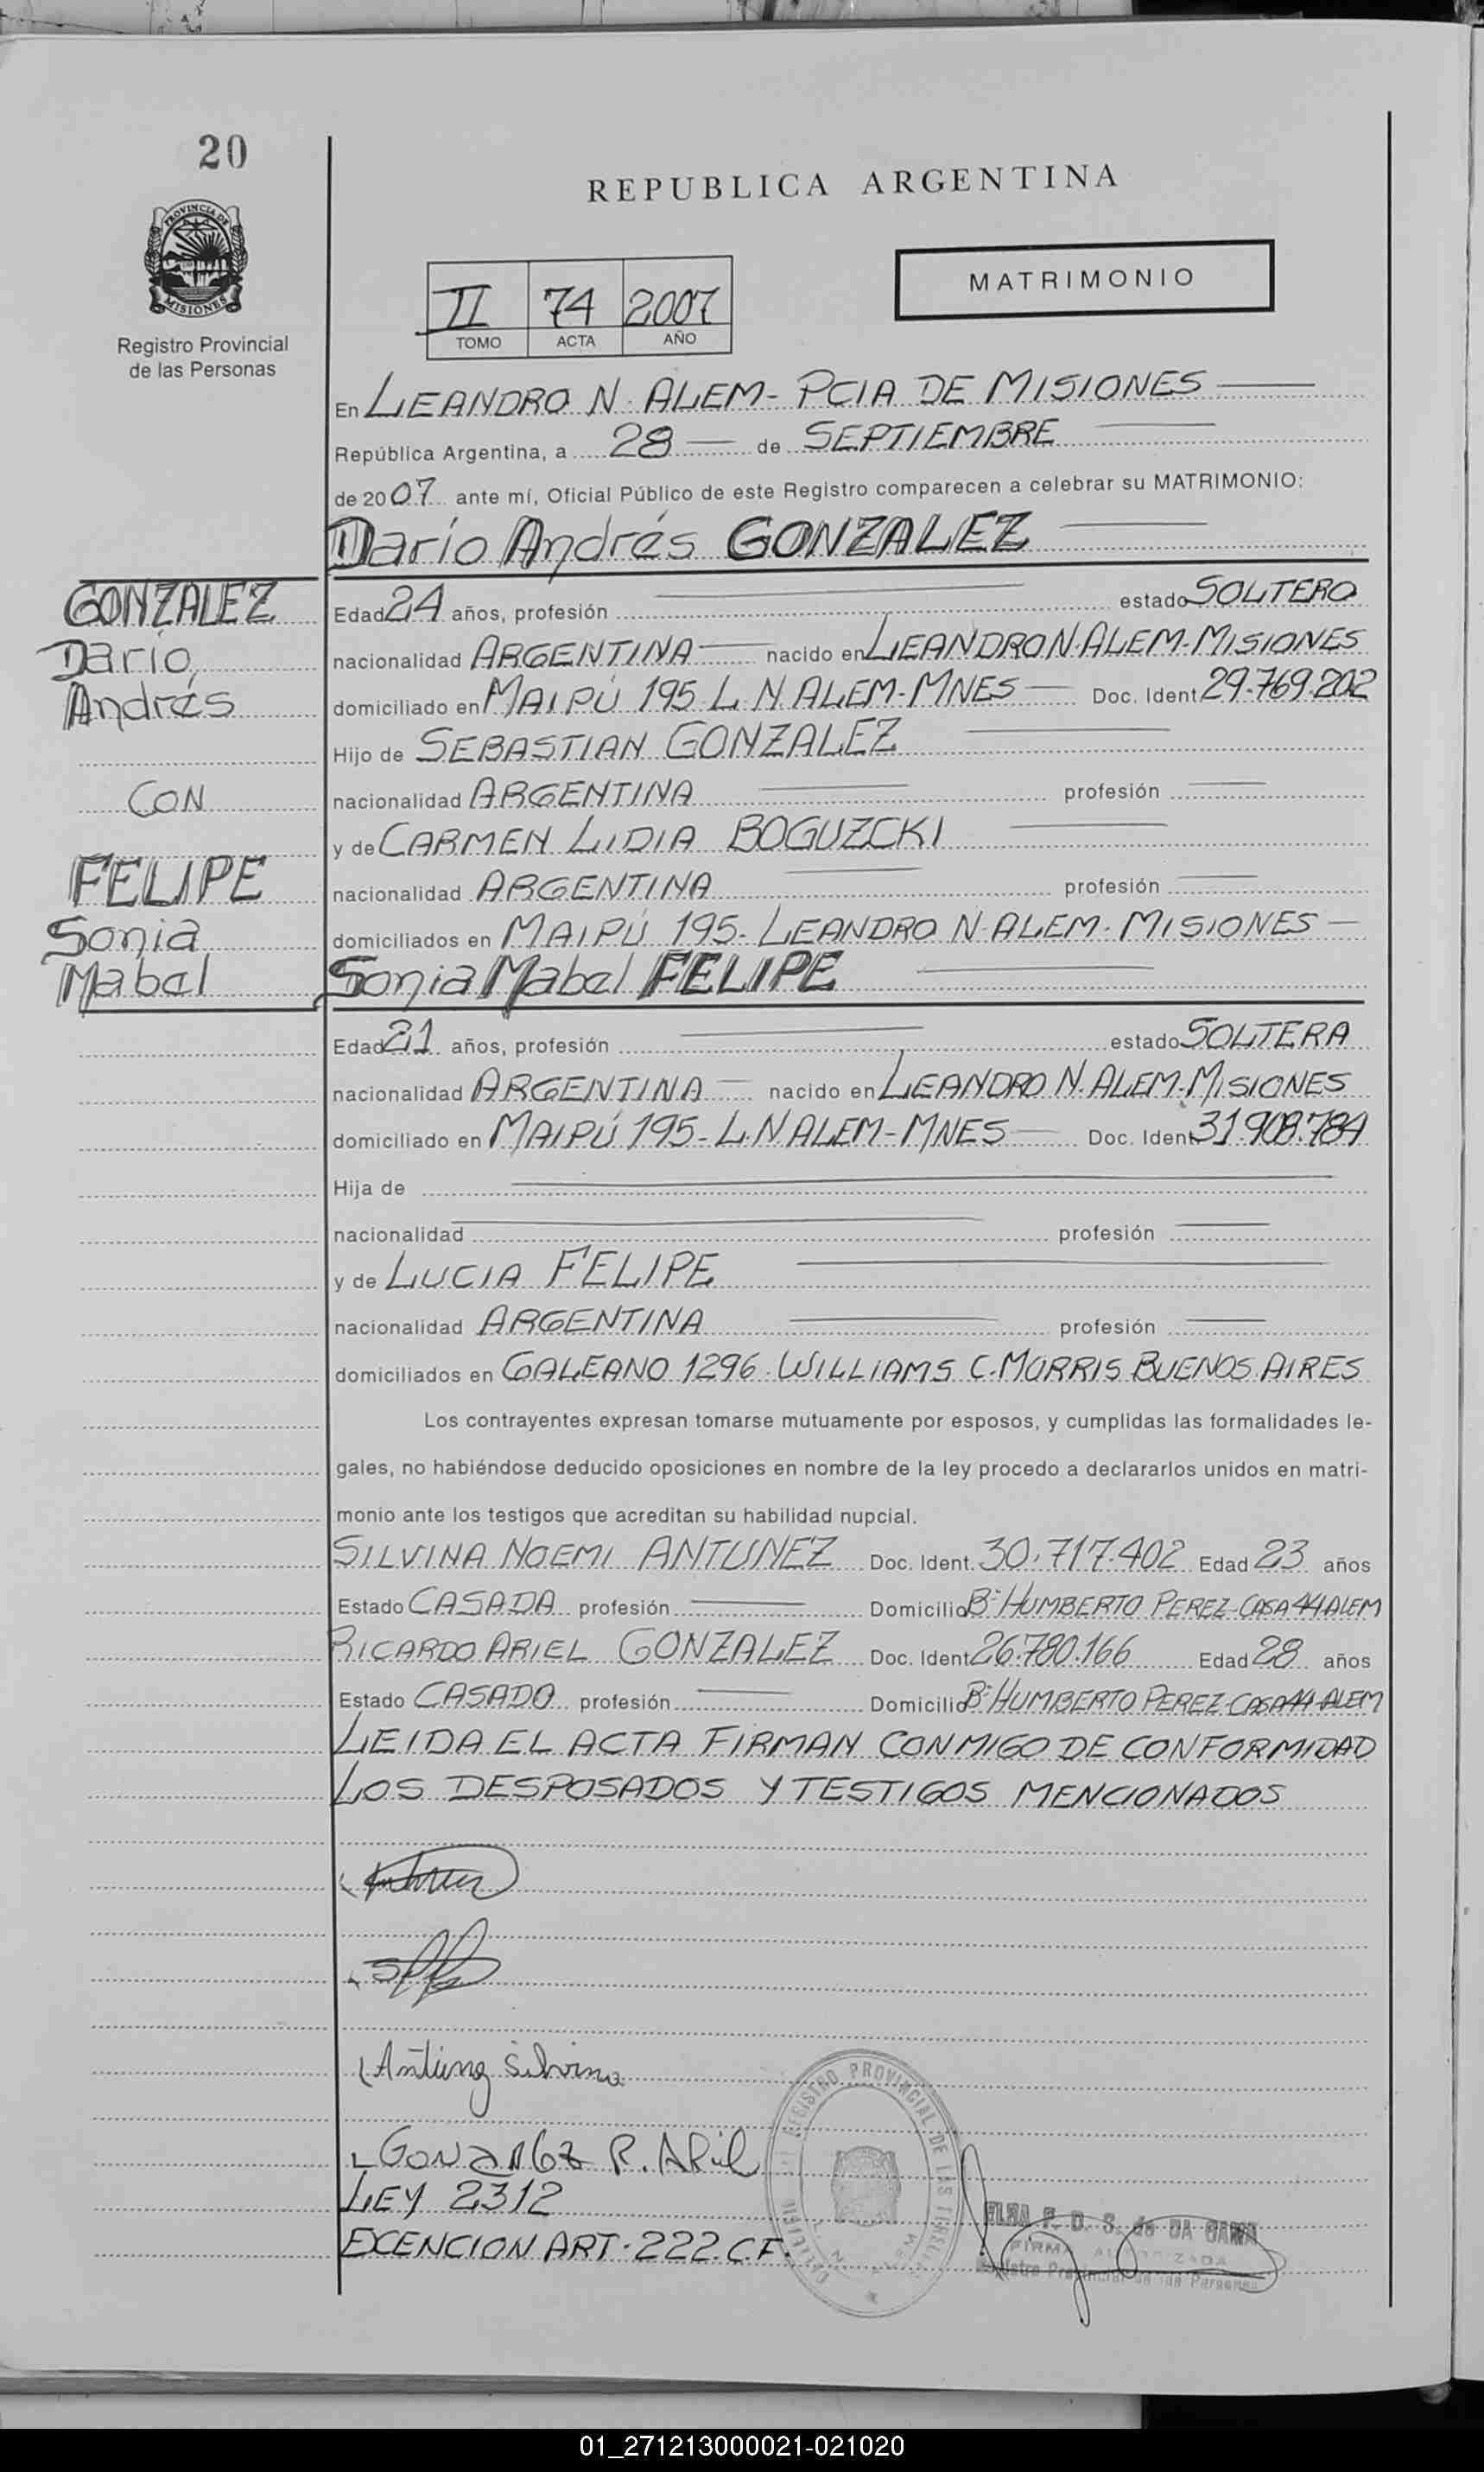 20
REPUBLICA ARGENTINA
PROVINCIA DE
MISIONES
Registro Provincial
de las Personas
II 74 2007
TOMO ACTA AÑO
MATRIMONIO
En LEANDRO N. ALEM- PCIA DE MISIONES
República Argentina, a 28 de SEPTIEMBRE
de 2007 ante mí, Oficial Público de este Registro comparecen a celebrar su MATRIMONIO:
Darío Andrés GONZALEZ
GONZALEZ
Darío,
Andrés
CON
FELIPE
Sonia
Mabel
Edad 24 años, profesión estado SOLTERO
nacionalidad ARGENTINA nacido en LEANDRO N. ALEM-MISIONES
domiciliado en MAIPÚ 195 L N ALEM-MNES Doc. Ident 29.769.202
Hijo de SEBASTIAN GONZALEZ
nacionalidad ARGENTINA profesión
y de CARMEN LIDIA BOGUZCKI
nacionalidad ARGENTINA profesión
domiciliados en MAIPÚ 195- LEANDRO N. ALEM. MISIONES
Sonia Mabel FELIPE
Edad 21 años, profesión estado SOLTERA
nacionalidad ARGENTINA nacido en LEANDRO N. ALEM-MISIONES
domiciliado en MAIPÚ 195- L.N ALEM-MNES Doc. Ident 31.908.784
Hija de
nacionalidad profesión
y de LUCIA FELIPE
nacionalidad ARGENTINA profesión
domiciliados en GALEANO 1296. WILLIAMS C. MORRIS BUENOS AIRES
Los contrayentes expresan tomarse mutuamente por esposos, y cumplidas las formalidades le-
gales, no habiéndose deducido oposiciones en nombre de la ley procedo a declararlos unidos en matri-
monio ante los testigos que acreditan su habilidad nupcial.
SILVINA NOEMI ANTUNEZ Doc. Ident. 30.717.402 Edad 23 años
Estado CASADA profesión Domicilio Bº HUMBERTO PEREZ-CASA 44 ALEM
RICARDO ARIEL GONZALEZ Doc. Ident 26.780.166 Edad 28 años
Estado CASADO profesión Domicilio Bº HUMBERTO PEREZ-CASA 44 ALEM
LEIDA EL ACTA FIRMAN CONMIGO DE CONFORMIDAD
LOS DESPOSADOS Y TESTIGOS MENCIONADOS
Silvina
R. ARiel
LEY 2312
EXCENCION ART. 222. C.F.
REGISTRO PROVINCIAL DE LAS
DA GAMA
FIRMA AUTORIZADA
Registro Provincial de las Personas
01_271213000021-021020